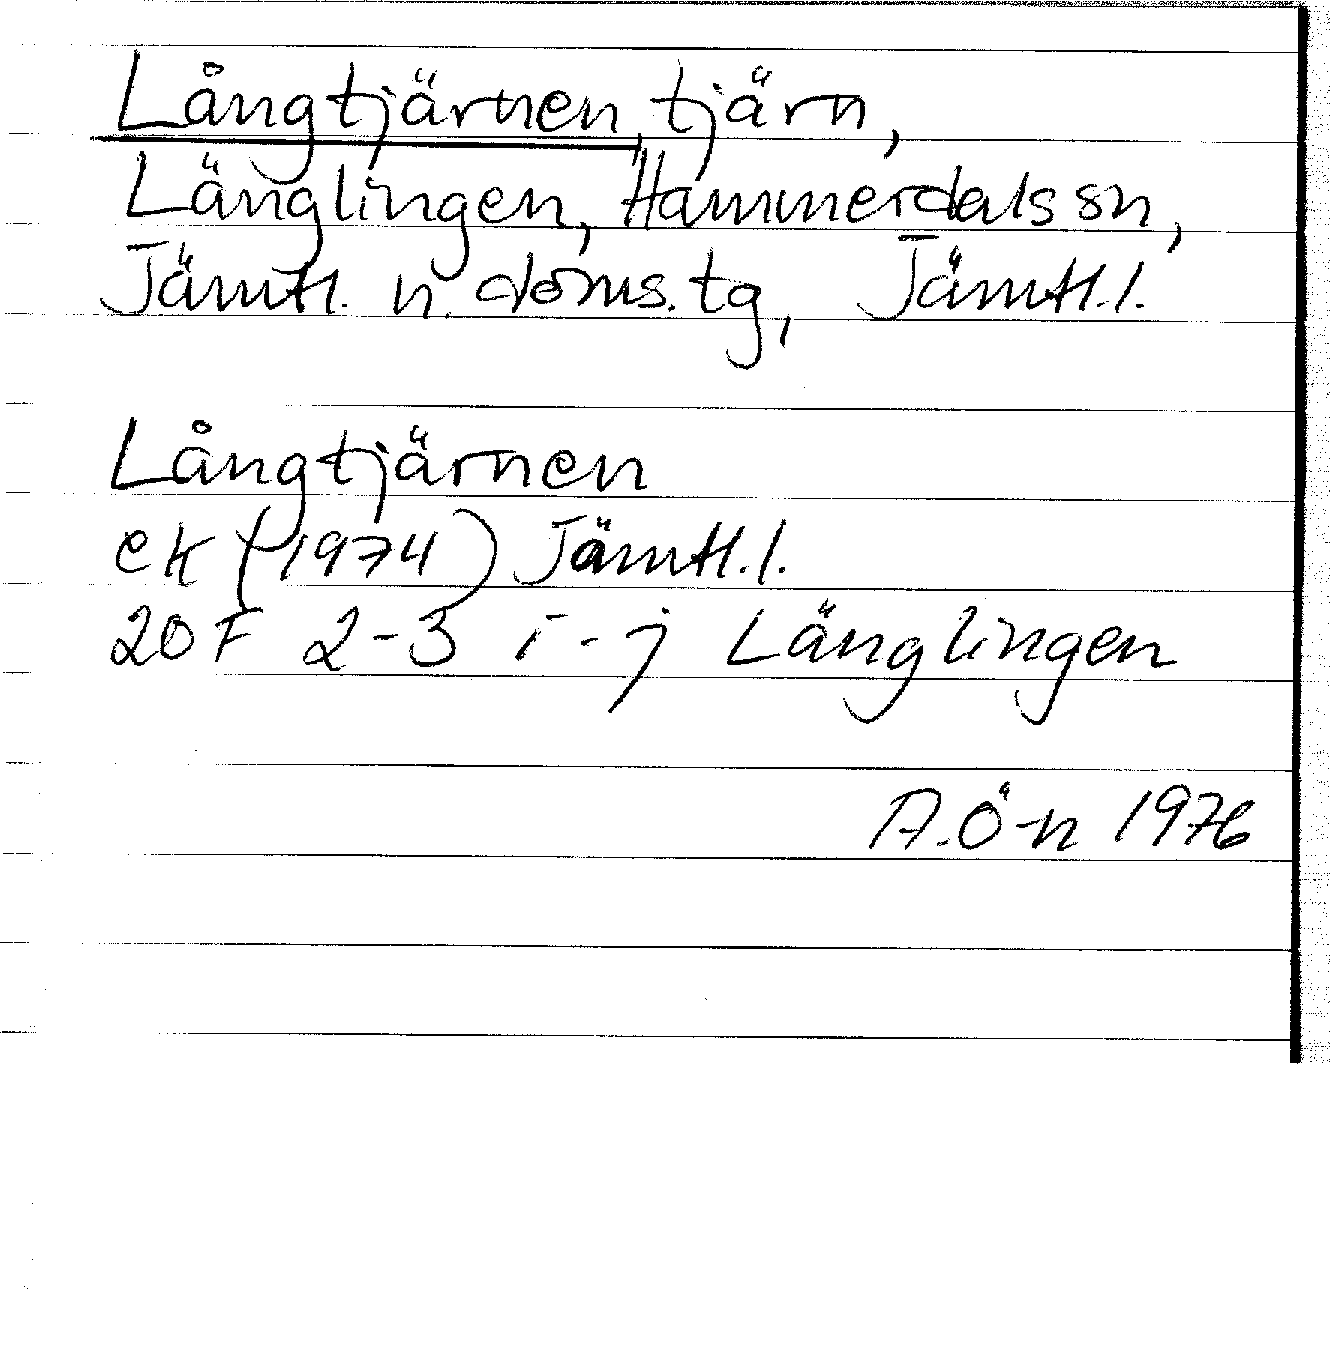 Långtjärnen, tjärn,
Länglingen, Hammerdals sn,
Jämtl. n. doms. tg, Jämtl. l.
Långtjärnen
ek (1974) Jämtl. l.
20 F 2-3 i-j Länglingen
A. Ö-n 1976